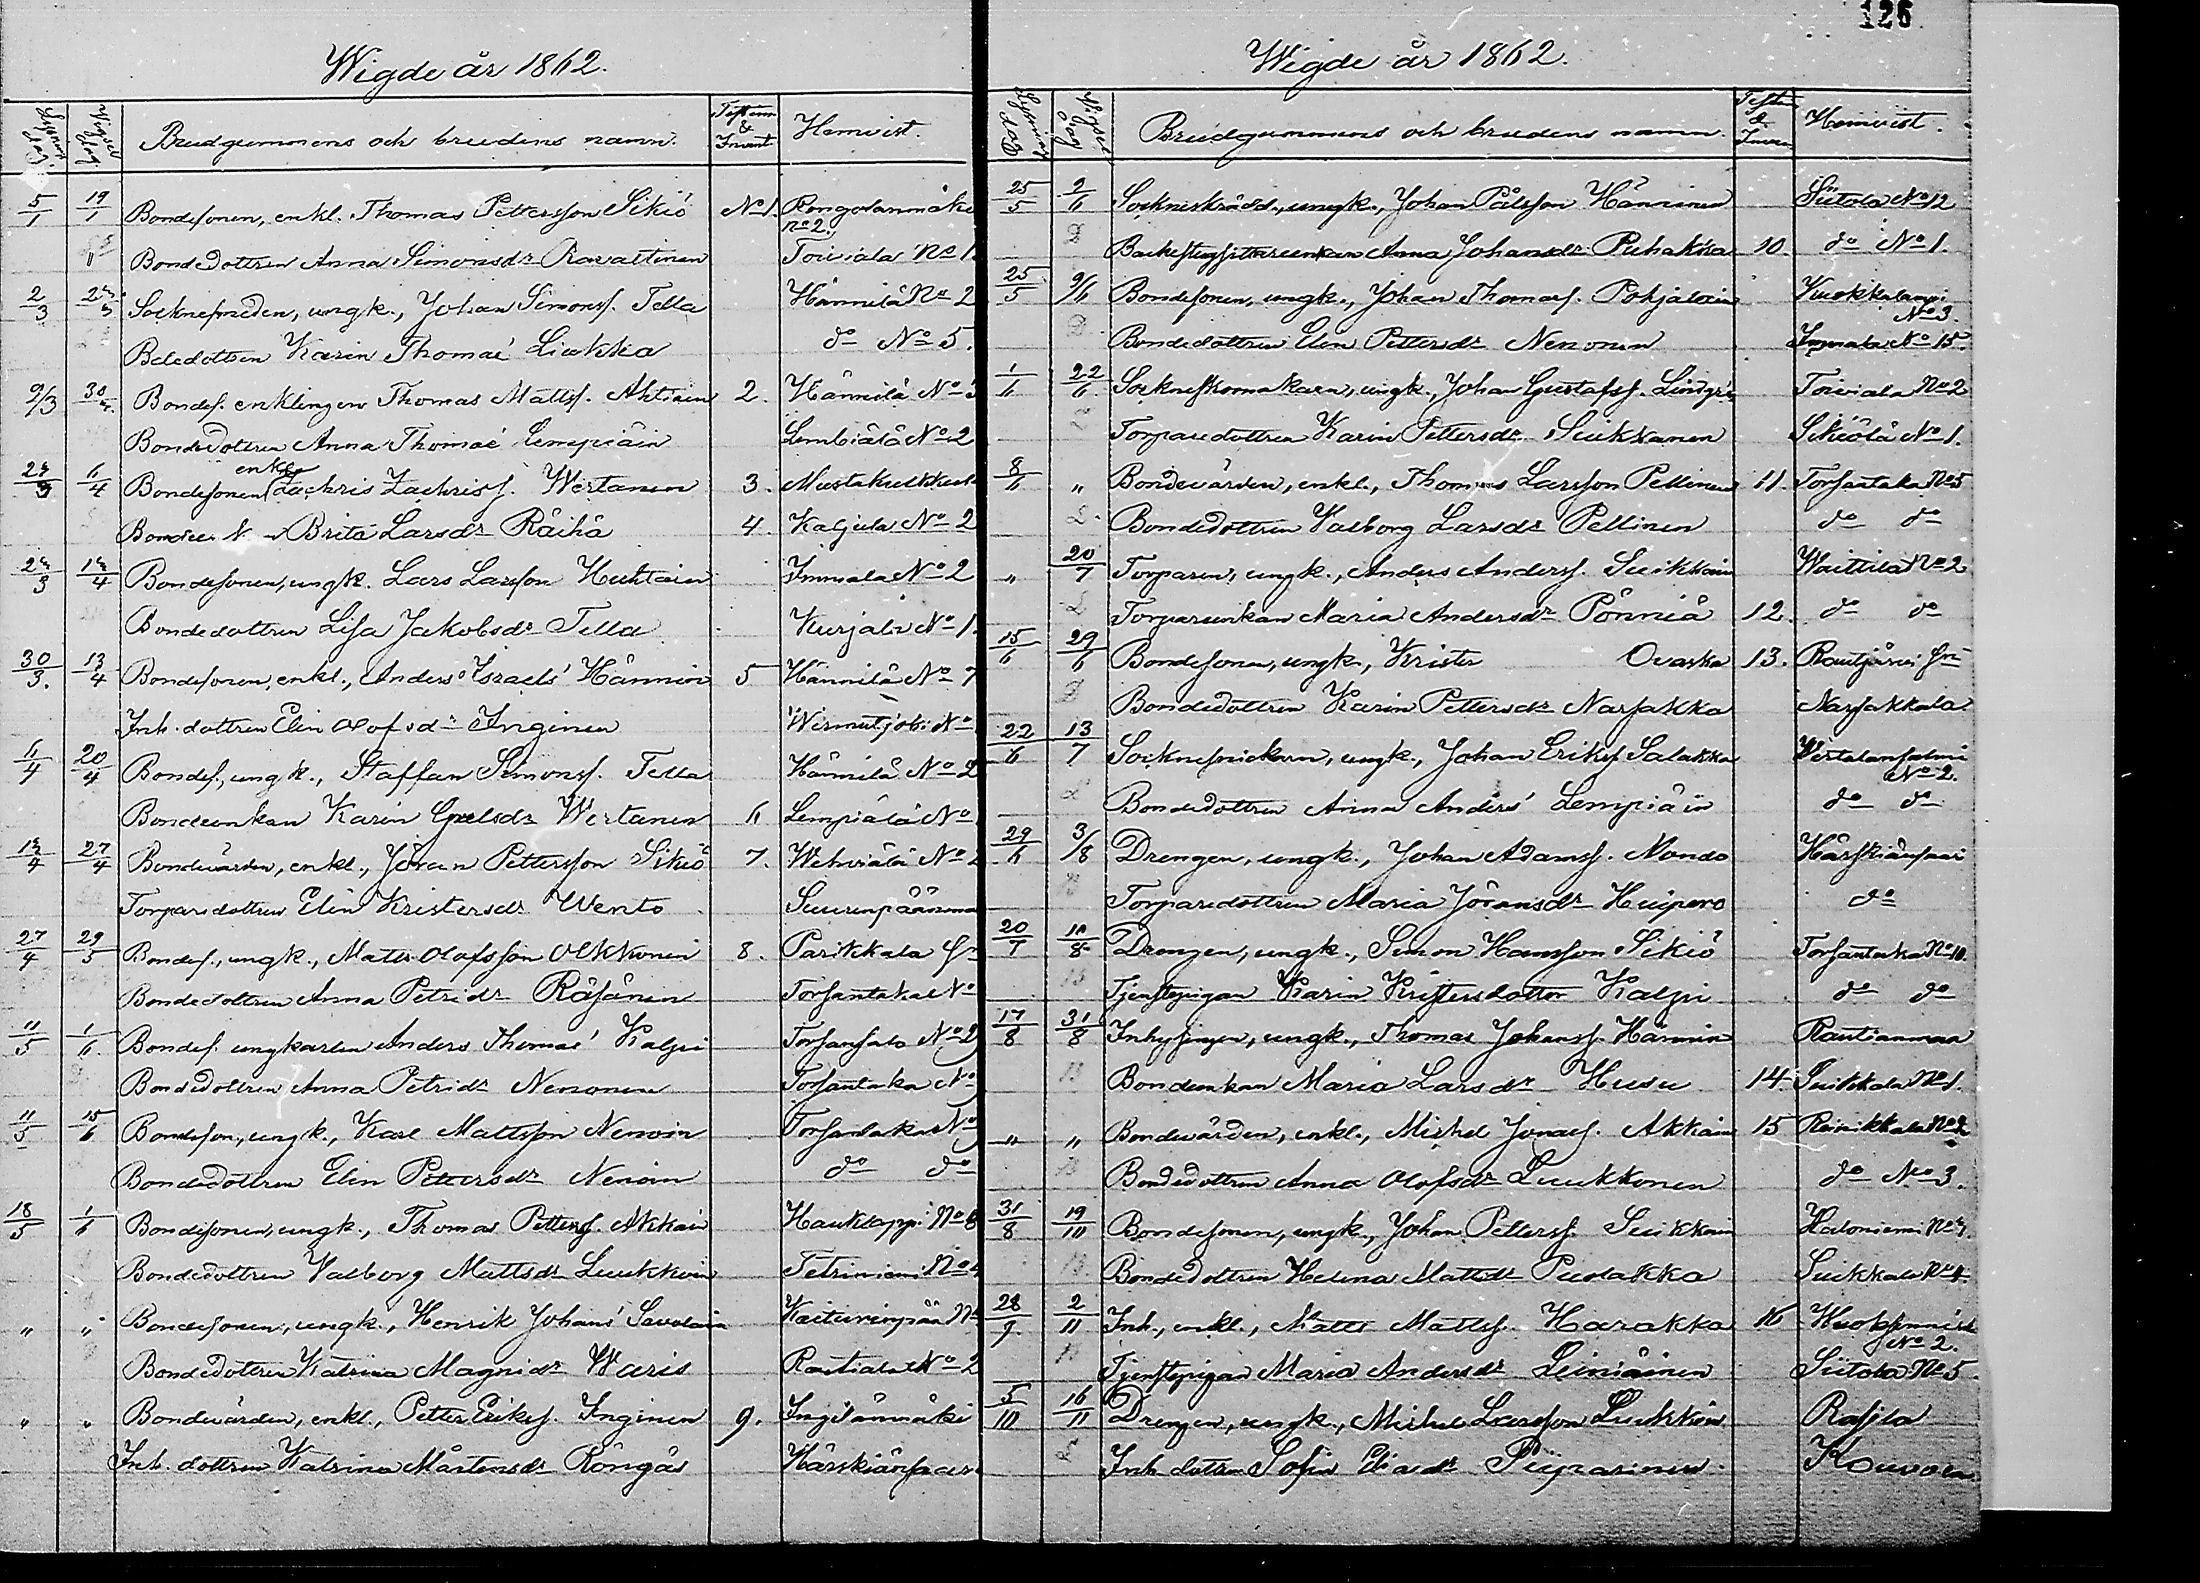 126
Wigde år 1862.
Lysnings dag. Vigsel dag. Brudgummens och brudens namn. Testam. & Invent. Hemvist.
5/1 19/1 Bondesonen, enkl. Thomas Pettersson Sikiö No 1. Rongolanmäki
no 2.
" Bondedottren Anna Simonsdr Ravattinen Toiviala No 1.
2/3 Socknesmeden, ungk., Johan Simonss. Tella Hännilä No 2
Bdedottren Karin Thomaé Liukka do No 5.
9/3 30/ Bondes. enklingen Thomas Mattss. Ahtiain 2. Hännilä No 3
Bondedottren Anna Thomaé Lempiäin Lembiälä No 2
enkl.
23/3 6/4 Bondesonen Zachris Zachriss. Wertanen 3. Mustakulkkula
Brita Larsdr Räihä 4. Kaljula No 2
23/3 13/4 Bondesonen, ungk. Lars Larsson Huhtain Immala No 2
Bondedottren Lisa Jakobsdr Tella Kurjala No 1.
30/3. 13/4 Bondesonen, enkl., Anders Israels Hännin 5 Hännilä No 7
Inh. dottren Elin Olofsdr Inginen Wirmutjoki No
6/4 20/4 Bondes., ungk., Staffan Simonss. Tella Hännilä No 2
Bondeenkan Karin Wertanen 6 Lempiälä No
13/4 27/4 Bondevärden, enkl., Jöran Pettersson Sikiö 7. No 2
Torparedottren Elin Kristersdr Wento
27/4 29/5 Bondes., ungk., Matts Olofsson Olkkonen 8. Parikkala Sn
Bondedottren Anna Petridr Räsänen Torsantaka No
11/5 1/6. Bondes. ungkarlen Anders Thomae Kalpi Torsansalo No 2
Bondedottren Anna Petridr Nenonen Torsantaka No
11/5 15/6 Bondeson, ungk., Karl Mattsson Nenoin Torsantaka No
Bondedottren Elin Pettersdr Nenoin do do
18/5 1/6 Bondesonen, ungk., Thomas Petterss. Akkain Haukkappi No 6
Bondedottren Valborg Mattsdr Luukkoin Tetriniemi No 4
" " Bondesonen, ungk., Henrik Johans Savolain Kaiturinpää No
Bondedottren Katrina Magnidr Waris Rautiala No 2
" " Bondevärden, enkl., Petter Erikss. Inginen 9. Ingilänmäki
Inh. dottren Katrina Mårtensdr Röngäs Härskiänsaari
Wigde år 1862.
Lysnings dag Vigsel dag Brudgummens och brudens namn. Testm. & Inven. Hemvist.
25/5 9/6 Sockneskrädd., ungk., Johan Pålsson Hänninen Siitola No 12
Backstugsittareenkan Anna Johansdr Puhakka 10. do No 1.
25/5 9/6 Bondesonen, ungk., Johan Thomass. Pohjalain Kuokkalampi
No 3.
Bondedottren Elin Pettersdr Nenonen Immala No 15.
1/6 22/6 Sockneskomakaren, ungk., Johan Gustafss. Lindgré Toiviala No 2
Torparedottren Karin Pettersdr Suikkanen Sikiölä No 1.
8/6 " Bondevärden, enkl., Thomas Larsson Pellinen 11. Torsantaka No 5
Bondedottren Valborg Larsdr Pellinen do do
" 20/7 Torparen, ungk., Anders Anderss. Suikkain Waittila No 2
Torpareenkan Maria Andersdr Pönniä 12. do do
15/6 29/6 Bondesonen, ungk., Krister Ovaska 13. Rautjärvi Sn
Bondedottren Karin Pettersdr Narsakka Narsakkala
22/6 13/7 Socknesnickaren, ungk., Johan Erikss. Salakka Wirtalansalmi
No 2.
Bondedottren Anna Anders Lempiäin do do
29/6 3/8 Drengen, ungk., Johan Adamss. Nondo Härskiänsaari
Torparedottren Maria Jöransdr Huipero do
20/7 10/8 Drengen, ungk., Simon Hansson Sikiö Torsantaka No 10.
Tjenstepigan Karin Kristersdotter Kalpi do do
17/8 31/8 Inhysingen, ungk., Thomas Johanss. Hännin Rautianmaa
Bondeenkan Maria Larsdr Husu 14 Suikkala No 1.
" " Bondevärden, enkl., Michel Jonass. Akkain 15 Reinikkala No 2
Bondedottren Anna Olofsdr Luukkonen do No 3.
31/8 19/10 Bondesonen, ungk., Johan Petterss. Suikkain Haloniemi No
Bondedottren Helena Mattsdr Puolakka Suikkala No 4
28/9. 2/11 Inh., enkl., Matts Mattss. Harakka 16
No 2.
Tjenstepigan Maria Andersdr Leiniäinen Siitola No 5.
5/10 16/11 Drengen, ungk., Michel Larsson Luukkoin Rasila
Inh dottren Sofia Eliasdr Piiparinen Kouvola